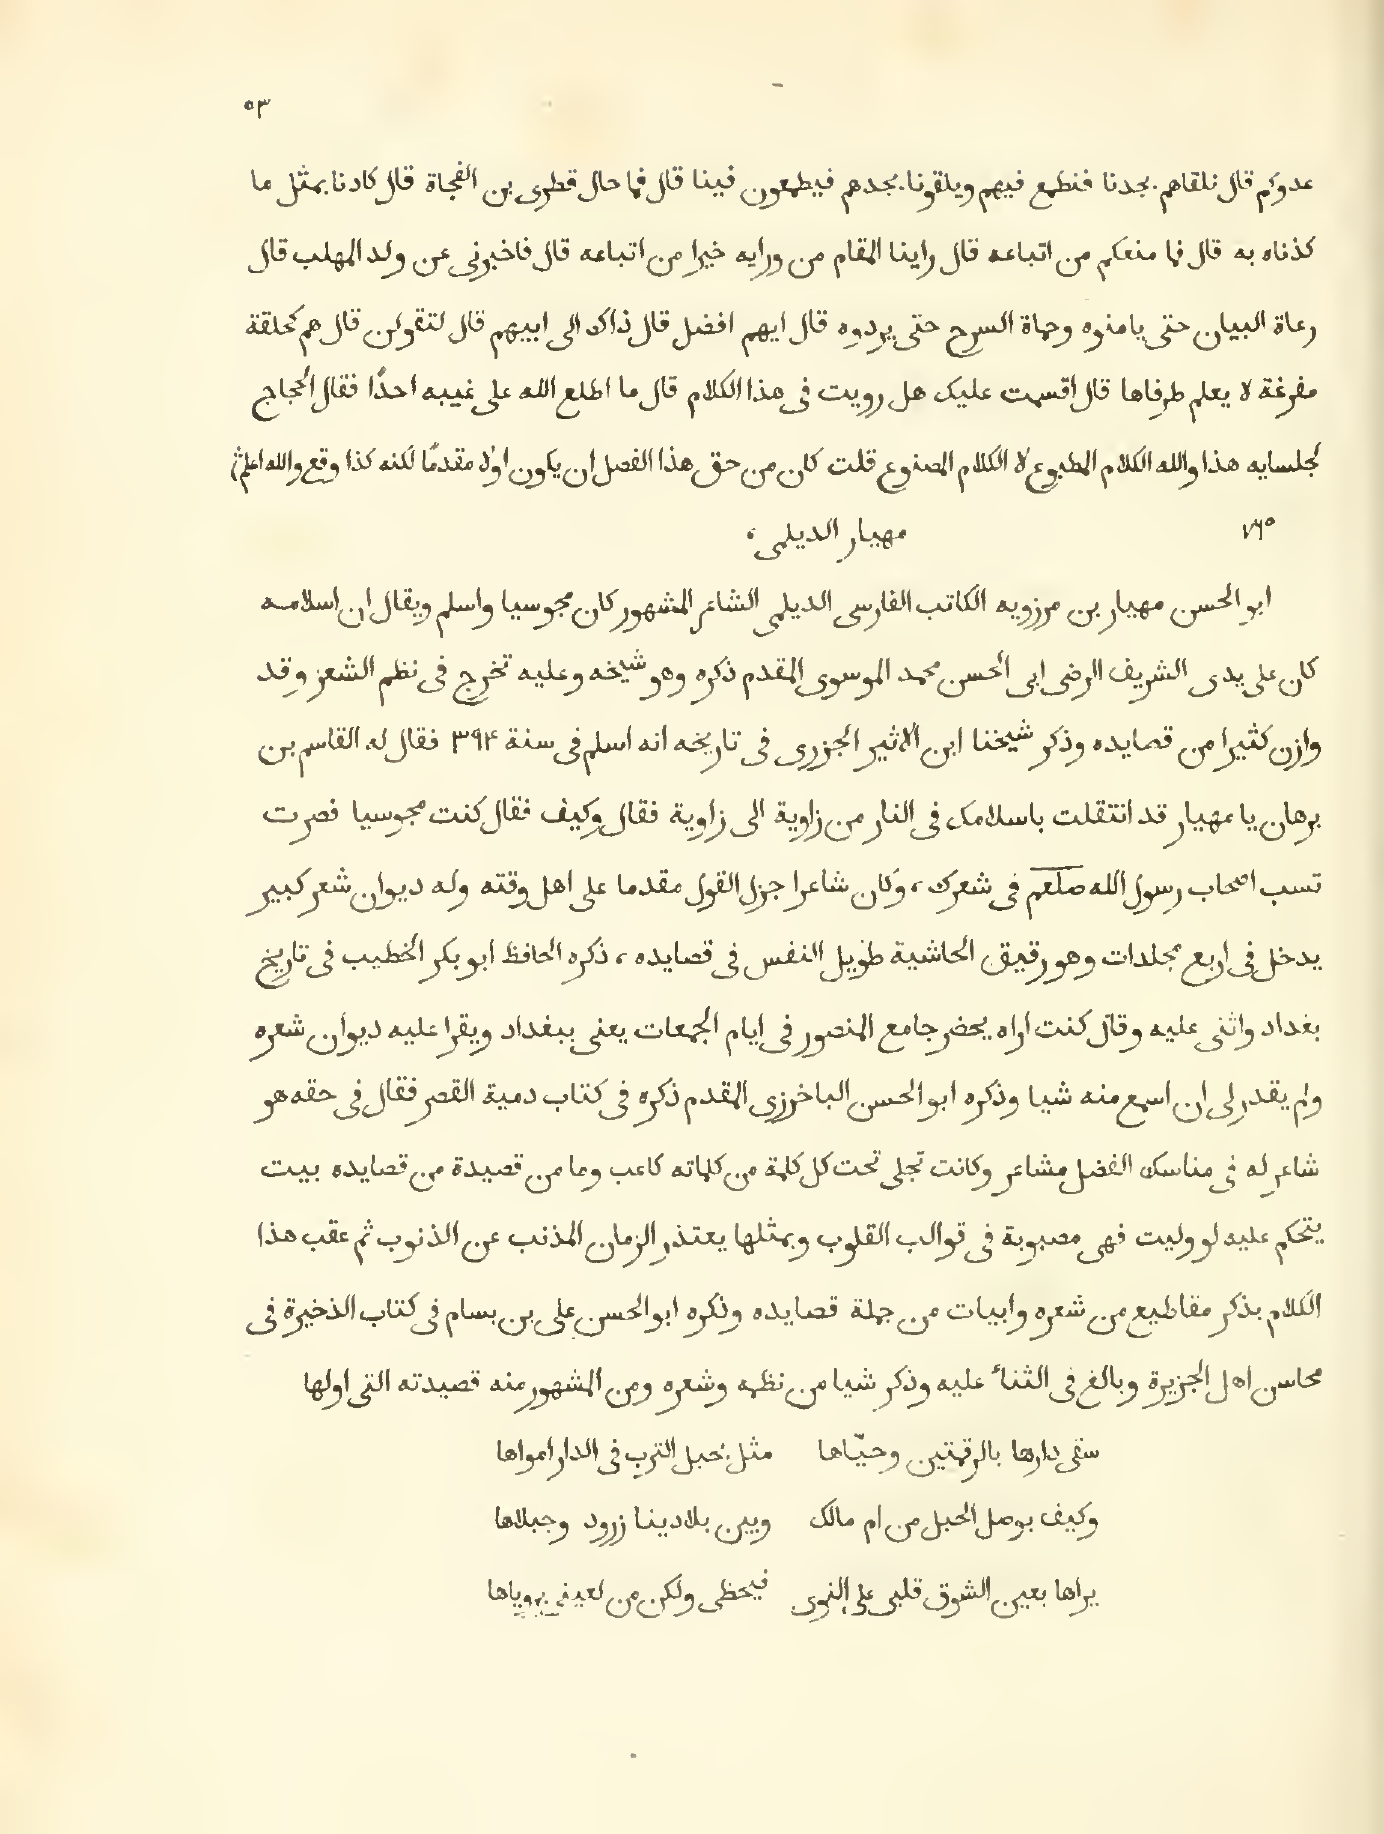 ٥٣
عدوكم قال نلقاهم بجدنا فنطمع فيهم ويلقونا بجدهم فيطمعون فينا قال فما حال قطرى بن الفجاة قال كادنا بمثل ما
كدناه به قال فما منعكم من اتباعه قال راينا المقام من ورايه خيرا من اتباعه قال فاخبرنى عن ولد المهلب قال
رعاة البيان حتى يامنوه وحماة السرح حتى يردوه قال ايهم افضل قال ذاك الى ابيهم قال لتقولن قال هم كحلقة
مفرغة لا يعلم طرفاها قال اقسمت عليك هل رويت فى هذا الكلام قال ما اطلع الله على غيبه احدًا فقال الحجاج
لجلسايه هذا والله الكلام المطبوع لا الكلام المصنوع قلت كان من حق هذا الفصل ان يكون اولا مقدمًا لكنه كذا وقع والله اعلم
٧٦٥
مهيار الديلمى،
ابو الحسن مهيار بن مرزويه الكاتب الفارسى الديلمى الشاعر المشهور كان مجوسيا واسلم ويقال ان اسلامه
كان على يدى الشريف الرضى ابى الحسن محمد الموسوى المقدم ذكره وهو شيخه وعليه تخرج فى نظم الشعر وقد
وازن كثيرا من قصايده وذكر شيخنا ابن الاثير الجزرى فى تاريخه انه اسلم فى سنة ٣٩٤ فقال له القاسم بن
برهان يا مهيار قد انتقلت باسلامك فى النار من زاوية الى زاوية فقال وكيف فقال كنت مجوسيا فصرت
تسب اصحاب رسول الله صلعم فى شعرك، وكان شاعرا جزل القول مقدما على اهل وقته وله ديوان شعر كبير
يدخل فى اربع مجلدات وهو رقيق الحاشية طويل النفس فى قصايده، ذكره الحافظ ابو بكر الخطيب فى تاريخ
بغداد واثنى عليه وقال كنت اراه يحضر جامع المنصور فى ايام الجمعات يعنى ببغداد ويقرا عليه ديوان شعره
ولم يقدر لى ان اسمع منه شيا وذكره ابو الحسن الباخرزى المقدم ذكره فى كتاب دمية القصر فقال فى حقه هو
شاعر له فى مناسك الفضل مشاعر وكانت تجلى تحت كل كلمة من كلماته كاعب وما من قصيدة من قصايده بيت
يتحكم عليه لو وليت فهى مصبوبة فى قوالب القلوب وبمثلها يعتذر الزمان المذنب عن الذنوب ثم عقب هذا
الكلام بذكر مقاطيع من شعره وابيات من جملة قصايده وذكره ابو الحسن على بن بسام فى كتاب الذخيرة فى
محاسن اهل الجزيرة وبالغ فى الثناء عليه وذكر شيا من نظمه وشعره ومن المشهور منه قصيدته التى اولها
سقى دارها بالرقمتين وحيّاها مثل يحبل الترب فى الدار امواها
وكيف بوصل الحبل من ام مالك وبين بلادينا زرود وجبلاها
يراها بعين الشوق قلبى على النوى فيحظى ولكن من لعينى برؤياها